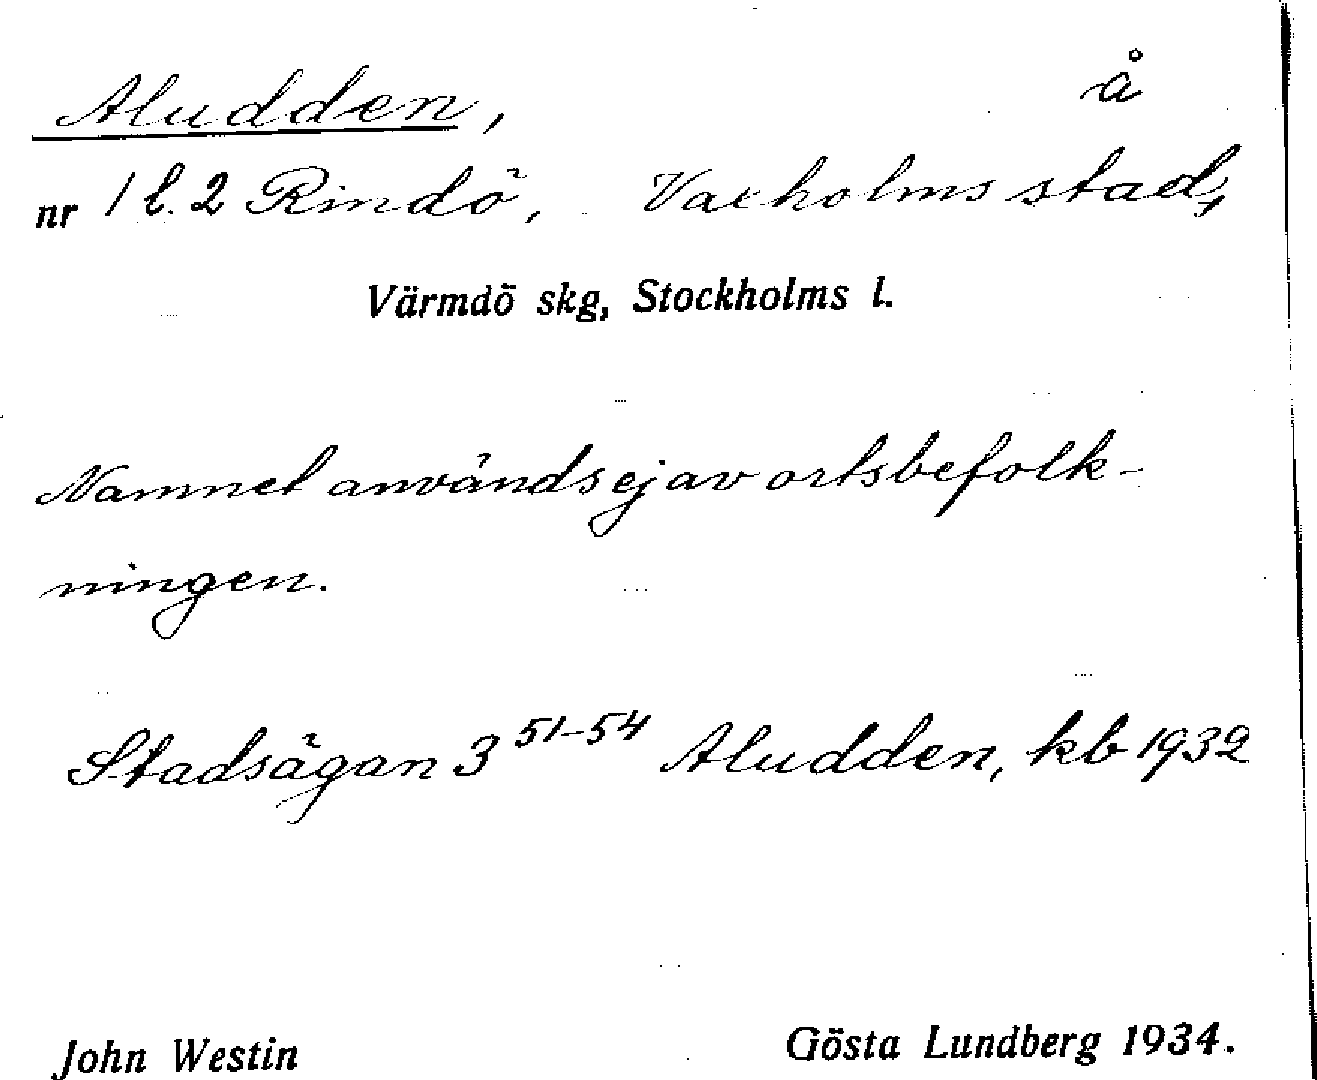 Aludden, å
nr 1 l. 2 Rindö, Vaxholms stad,
Värmdö skg, Stockholms l.
Namnet användes ej av ortsbefolk-
ningen.
Stadsägan 3 51-54 Aludden, kb 1932
John Westin Gösta Lundberg 1934.